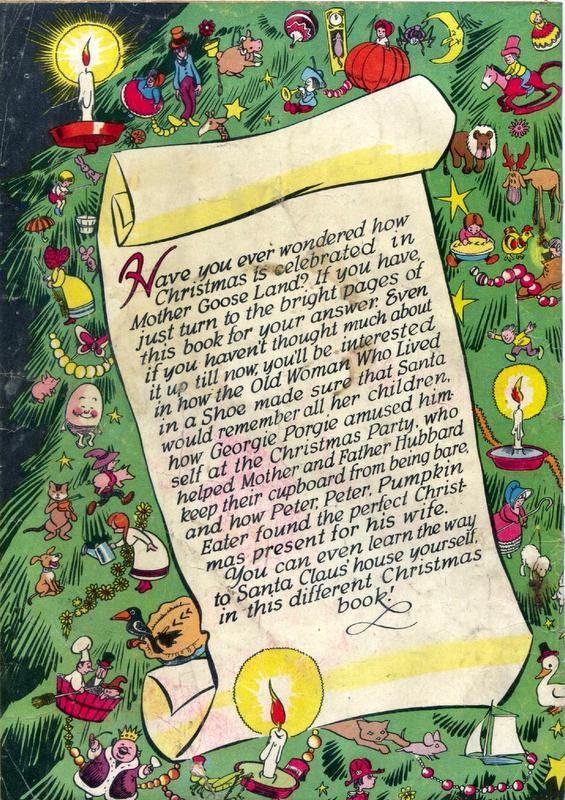 Have you ever wondered how
Christmas is celebrated in
Mother Goose Land? If you have,
just turn to the bright pages of
this book for your answer. Even
if you haven't thought much about
it up till now, you'll be interested
in how the Old Woman Who Lived
in a Shoe made sure that Santa
would remember all her children,
how Georgie Porgie amused him-
self at the Christmas Party, who
helped Mother and Father Hubbard
keep their cupboard from being bare,
and how Peter, Peter, Pumpkin
Eater found the perfect Christ-
mas present for his wife.
You can even learn the way
to Santa Claus' house yourself,
in this different Christmas
book!